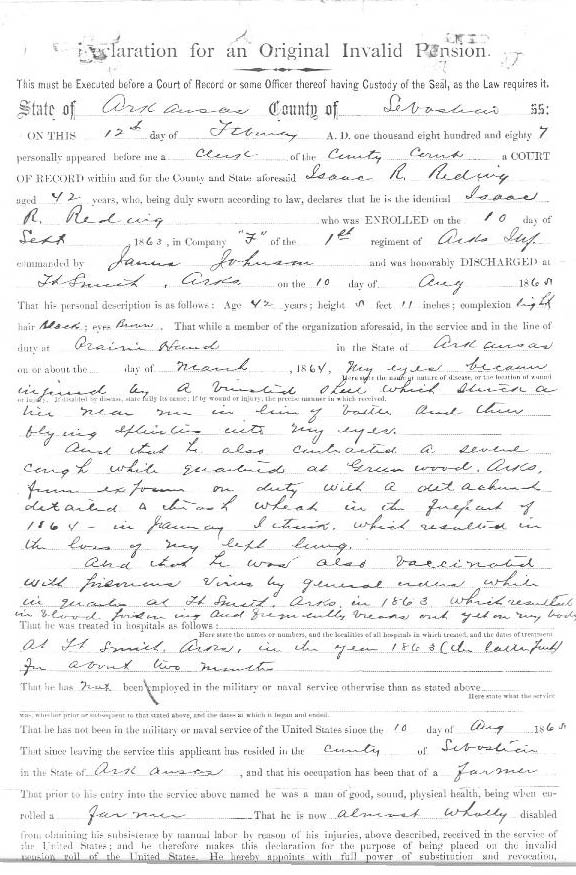 Declaration for an Original Invalid Pension.
This must be Executed before a Court of Record or some Officer thereof having Custody of the Seal, as the Law requires it.
State of Arkansas County of Sebastian SS:
ON THIS 12th day of February A. D. one thousand eight hundred and eighty 7
personally appeared before me a Clerk of the County Court a COURT
OF RECORD within and for the County and State aforesaid Isaac R. Redwig
aged 42 years, who, being duly sworn according to law, declares that he is the identical Isaac
R. Redwig who was ENROLLED on the 10 day of
Sept 1863, in Company "F" of the 1st regiment of Arks Inf.
commanded by James Johnson and was honorably DISCHARGED at
Ft Smith, Arks on the 10 day of Aug 1865
That his personal description is as follows: Age 42 years; height 5 feet 11 inches; complexion light
hair Black; eyes Brown. That while a member of the organization aforesaid, in the service and in the line of
duty at Prairie in the State of Arkansas
on or about the day of March, 1864, My eyes became
Here state the name or nature of disease, or the location of wound
injured by a shell which struck a
or injury. If disabled by disease, state fully its cause; if by wound or injury, the precise manner in which received.
near me in line of battle and then
flying splinters into my eyes.
And that he also contracted a severe
cough while quartered at Greenwood, Arks,
from exposure on duty with a detachment
detailed to thrash wheat in the forepart of
1864 - in January I think, which resulted in
the loss of my left lung.
And that he was also vaccinated
with poisonous virus by general orders while
in quarters at Ft Smith, Arks in 1863 which resulted
in blood poisoning and frequently breaks out yet on my body
That he was treated in hospitals as follows:
Here state the names or numbers, and the localities of all hospitals in which treated, and the dates of treatment
At Ft Smith, Arks, in the year 1863 (the latter part)
for about two months
That he has not been employed in the military or naval service otherwise than as stated above
Here state what the service
was, whether prior or subsequent to that stated above, and the dates at which it began and ended.
That he has not been in the military or naval service of the United States since the 10 day of Aug 1865
That since leaving the service this applicant has resided in the county of Sebastian
in the State of Arkansas, and that his occupation has been that of a farmer
That prior to his entry into the service above named he was a man of good, sound, physical health, being when en-
rolled a farmer That he is now almost wholly disabled
from obtaining his subsistence by manual labor by reason of his injuries, above described, received in the service of
the United States; and he therefore makes this declaration for the purpose of being placed on the invalid
pension roll of the United States. He hereby appoints with full power of substitution and revocation,